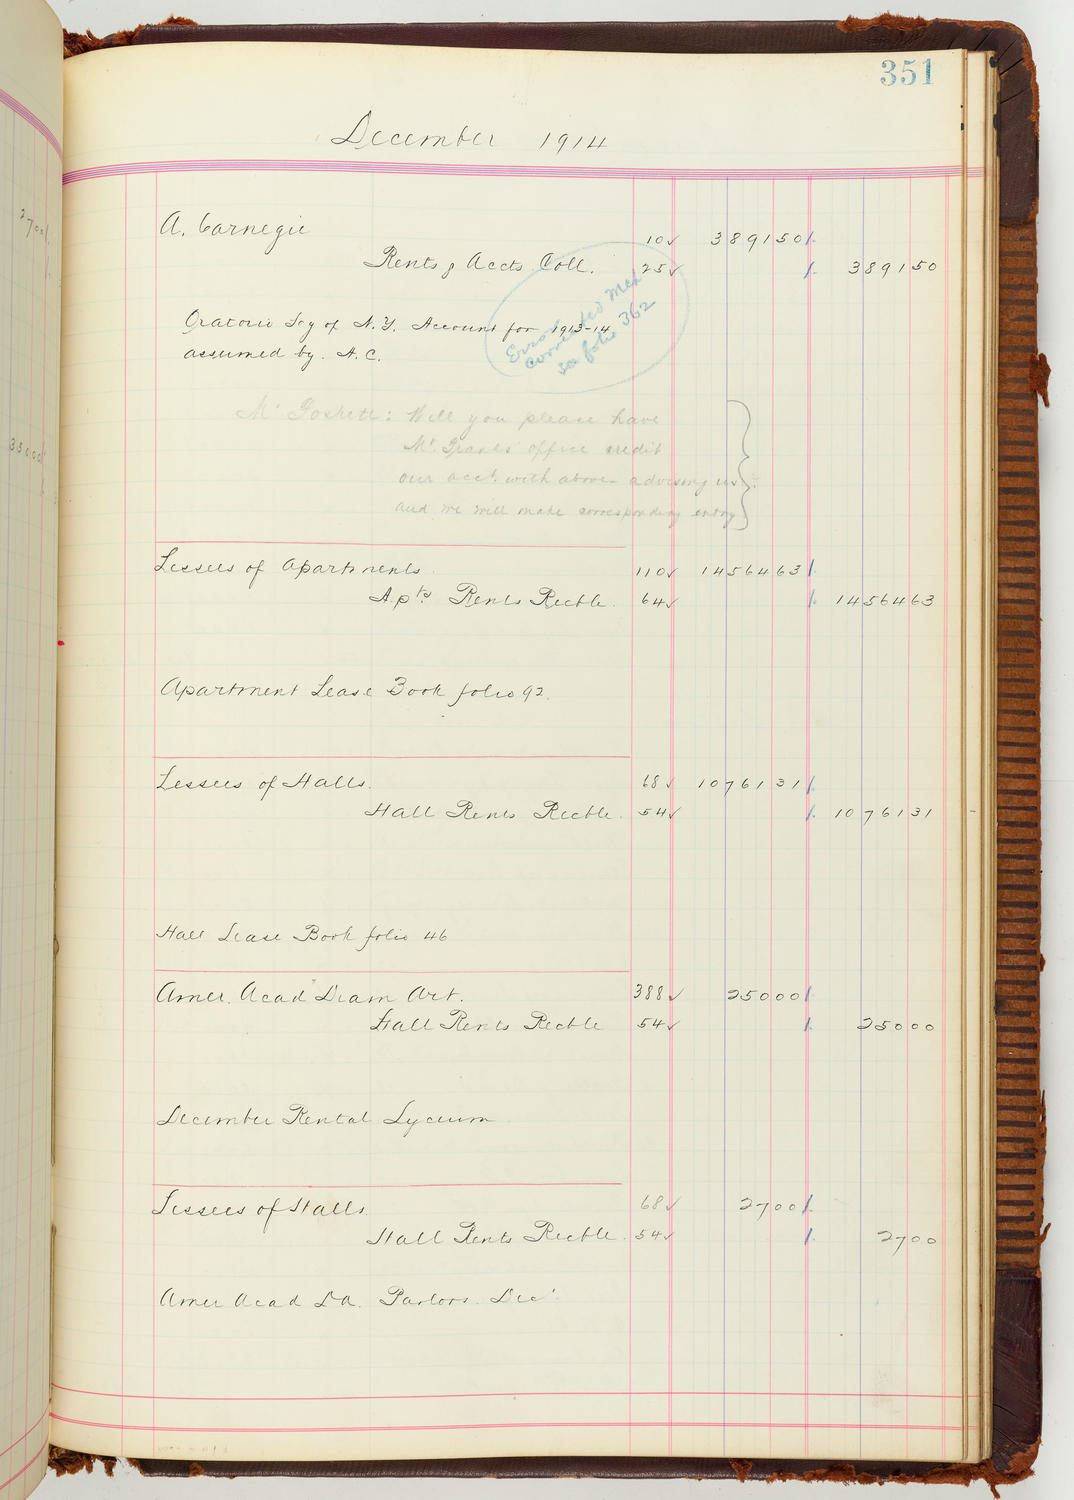 351
December 1914
A. Carnegie
10✓ 389150
Rents & Accts Coll. 25✓ 389150
Oratorio Socy of N.Y. Account for 1913-14
assumed by A.C.
Error
corrected
see folio 362
Will you please have
office credit
our acct. with above - advising us
and we will make corresponding entry
Lessees of Apartments 110✓ 1456463
Apts Rents Recble. 64✓ 1456463
Apartment Lease Book folio 92.
Lessees of Halls. 68✓ 1076131
Hall Rents Recble. 54✓ 1076131
Hall Lease Book folio 46
Amer. Acad Dram Art. 388✓ 25000
Hall Rents Recble 54✓ 25000
December Rental Lyceum
Lessees of Halls 68✓ 2700
Hall Rents Recble. 54✓ 2700
Amer Acad D.A. Parlors. Dec.
2700
35000